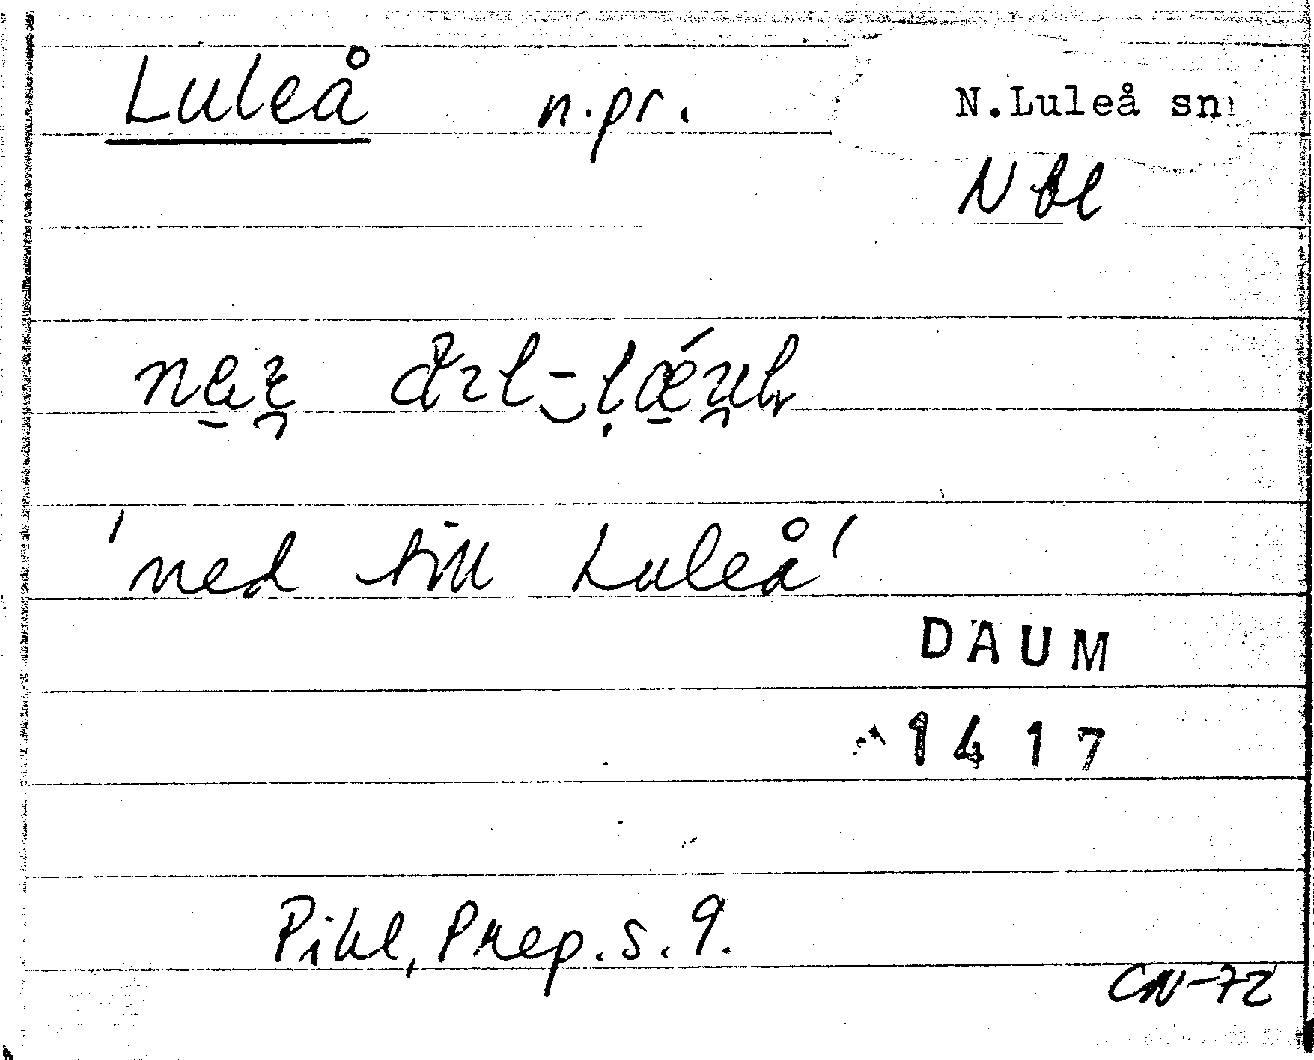 Luleå n.pr. N.Luleå sn
Nbl
'ned till Luleå'
DAUM
1417
Pihl, Prep. s. 9.
CN-72